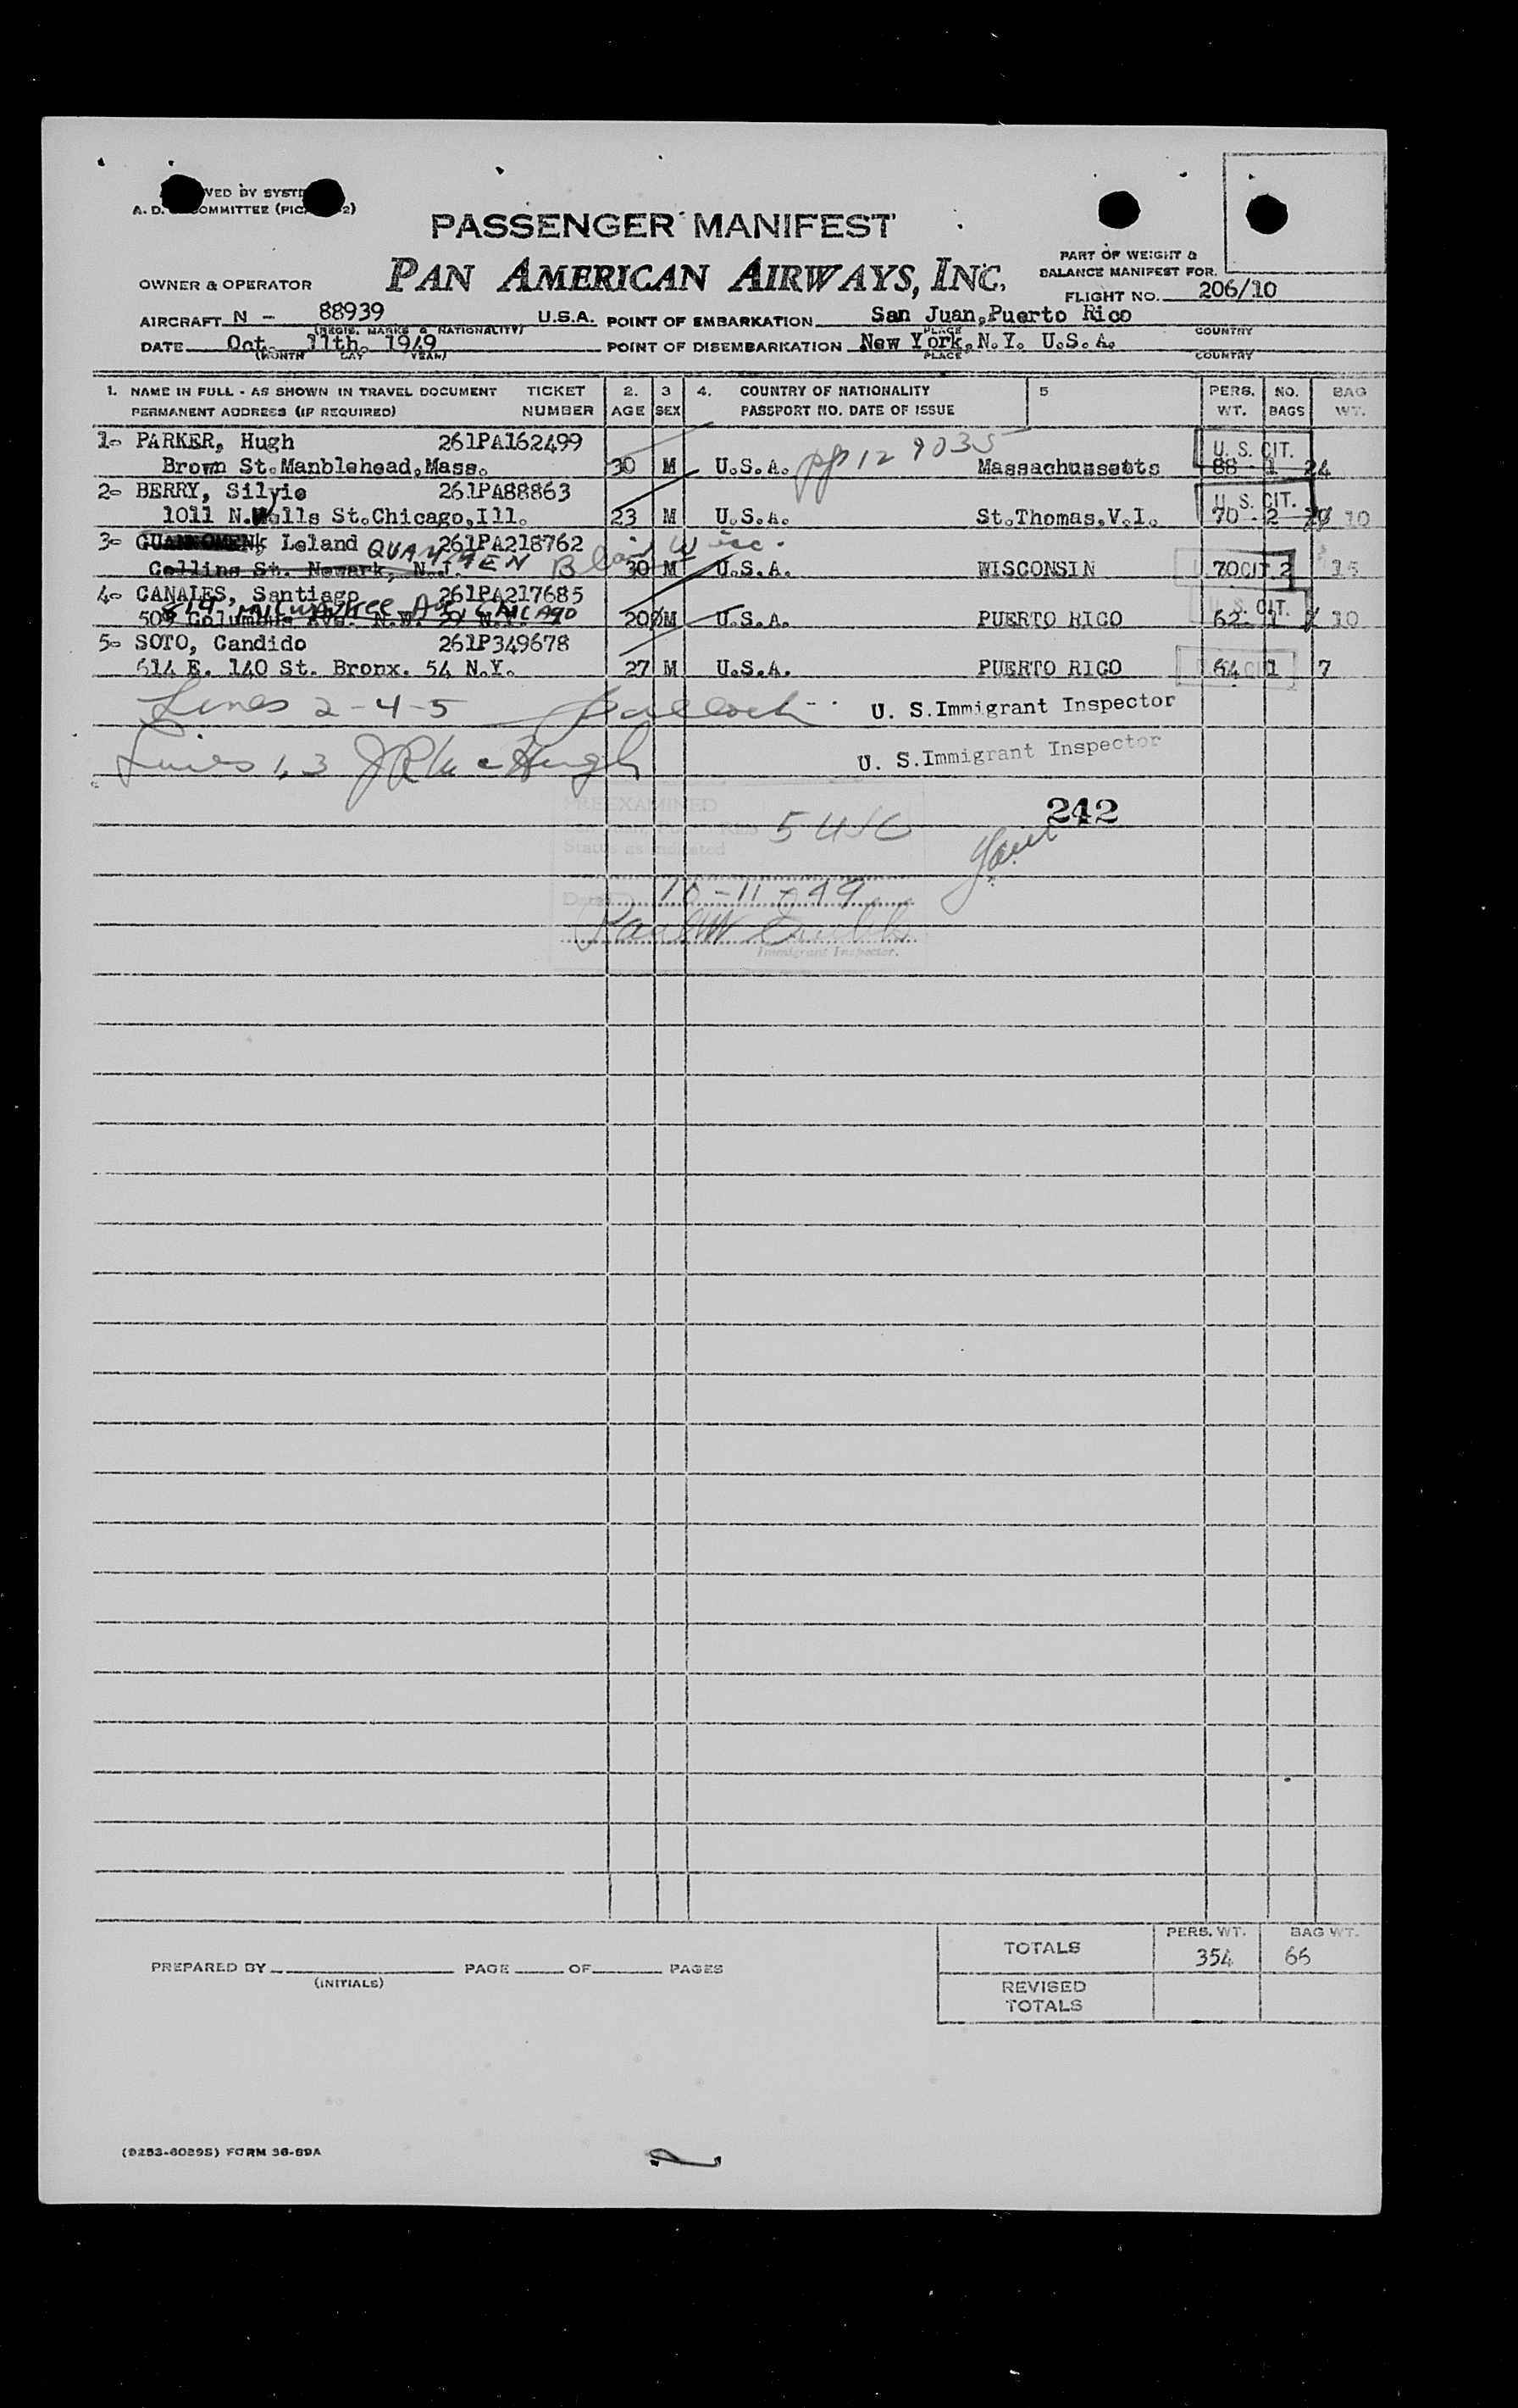 PASSENGER MANIFEST
OWNER & OPERATOR PAN AMERICAN AIRWAYS, INC.
PART OF WEIGHT &
BALANCE MANIFEST FOR
FLIGHT NO. 206/10
AIRCRAFT N - 88939 U.S.A. POINT OF EMBARKATION San Juan, Puerto Rico
(REGIS. MARKS & NATIONALITY) PLACE COUNTRY
DATE Oct. 11th. 1949 POINT OF DISEMBARKATION New York, N.Y. U.S.A.
(MONTH DAY YEAR) PLACE COUNTRY
1. NAME IN FULL - AS SHOWN IN TRAVEL DOCUMENT TICKET 2. 3 4. COUNTRY OF NATIONALITY 5 PERS. NO. BAG
PERMANENT ADDRESS (IF REQUIRED) NUMBER AGE SEX PASSPORT NO. DATE OF ISSUE WT. BAGS WT.
1- PARKER, Hugh 261PA162499 U. S. CIT.
Brown St. Manblehead, Mass. 30 M U.S.A. pp 129035 Massachussetts 88 1 24
2- BERRY, Silvie 261PA88863 U. S. CIT.
1011 N. Wells St. Chicago, Ill. 23 M U.S.A. St. Thomas, V.I. 70 2 10
3- Leland QUAMMEN 261PA218762 Blair Wisc.
Collins St. Newark, N.J. 30 M U.S.A. WISCONSIN 70 CIT. 2 15
4- CANALES, Santiago 261PA217685 U. S. CIT.
509 Columbus Ave. N.W. 29 N.Y. 619 Milwaukee Av. CHICAGO 20 M U.S.A. PUERTO RICO 62 1 10
5- SOTO, Candido 261P349678
614 E. 140 St. Bronx. 54 N.Y. 27 M U.S.A. PUERTO RICO 64 1 7
Lines 2-4-5 U. S. Immigrant Inspector
Lines 1, 3 J R McHugh U. S. Immigrant Inspector
PREEXAMINED 242
5 USC
Status as indicated
Date 10-11-49
Immigrant Inspector.
TOTALS PERS. WT. 354 BAG WT. 66
PREPARED BY PAGE OF PAGES
(INITIALS)
REVISED
TOTALS
(9253-6029S) FORM 36-69A